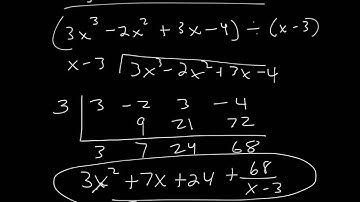 (3x³ - 2x² + 3x - 4) ÷ (x - 3)
x - 3 | 3x³ - 2x² + 3x - 4
3 | 3 - 2 3 - 4
9 21 72
3 7 24 68
3x² + 7x + 24 + 68/(x - 3)